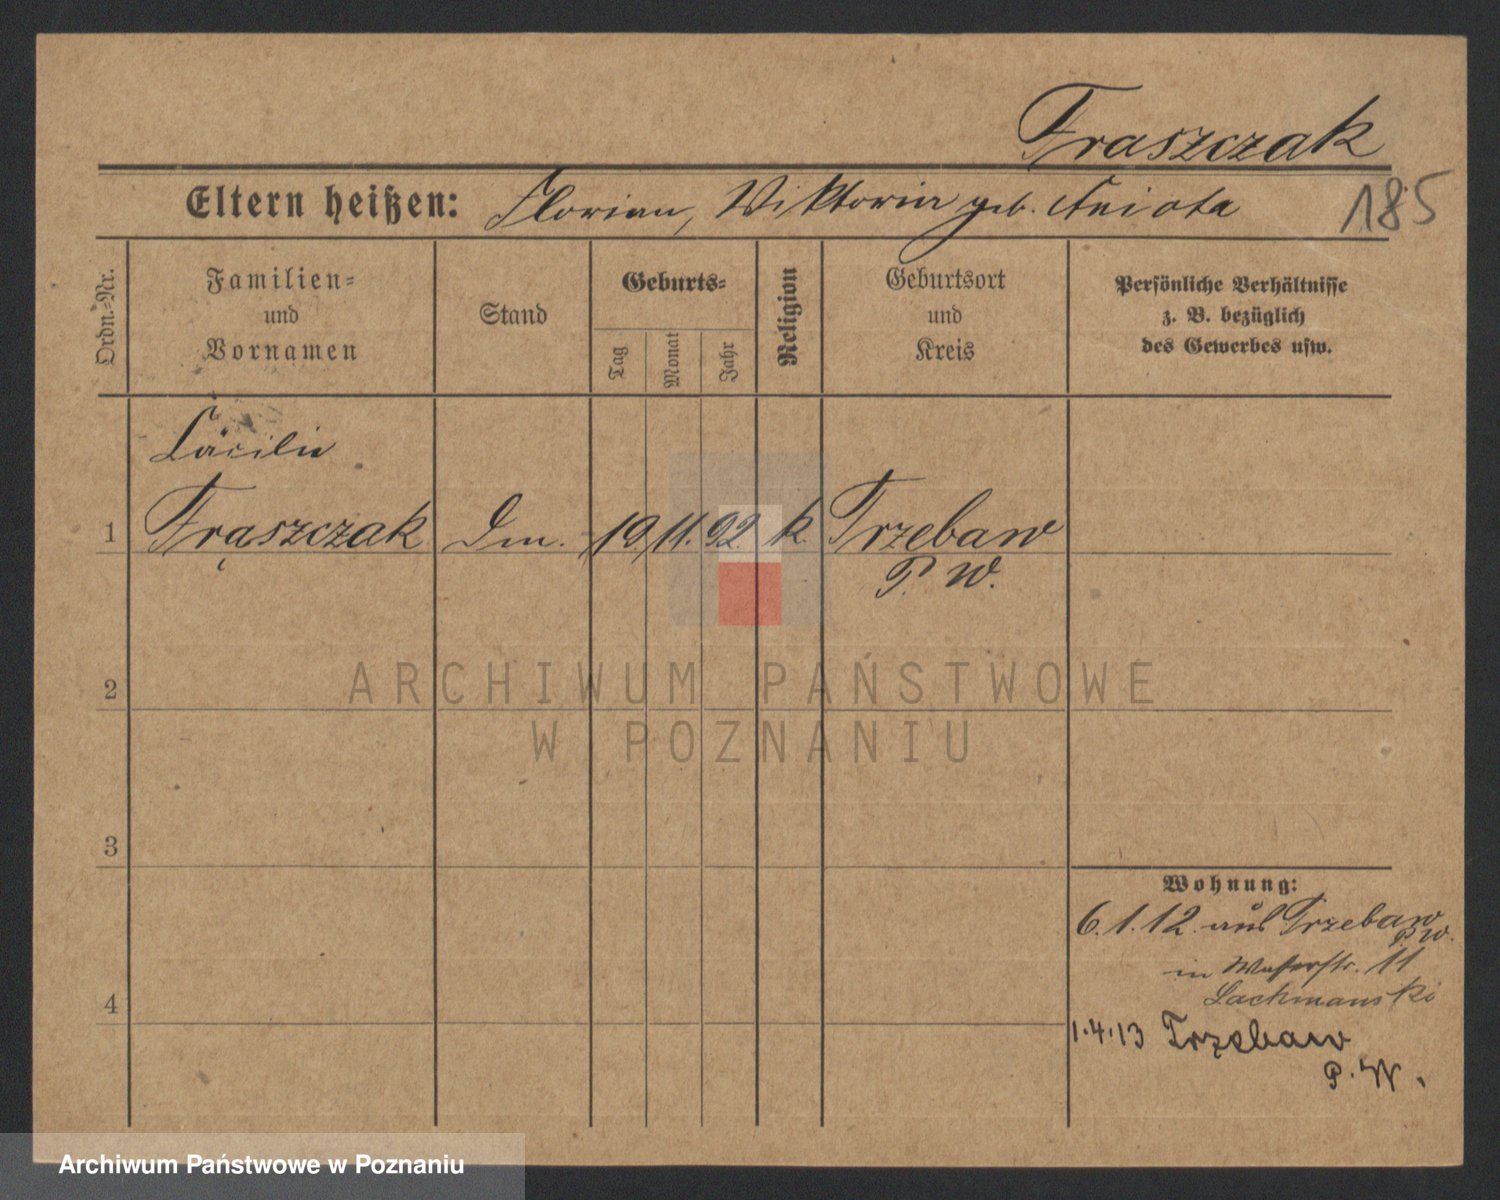 Fraszczak
Eltern heißen: Florian, Viktoria geb. Aniota
185
Ordn.-Nr.
Familien-
und
Vornamen
Stand
Geburts-
Tag
Monat
Jahr
Religion
Geburtsort
und
Kreis
Persönliche Verhältnisse
z. B. bezüglich
des Gewerbes usw.
Cäcilie
1 Frąszczak Dm. 19. 11. 92. k. Trzebaw
P. W.
2
3
4
Wohnung:
6.1.12. aus Trzebaw
P. W.
in Wasserstr. 11
Lachmanski
1.4.13 Trzebaw
P. W.
ARCHIWUM PAŃSTWOWE
W POZNANIU
Archiwum Państwowe w Poznaniu